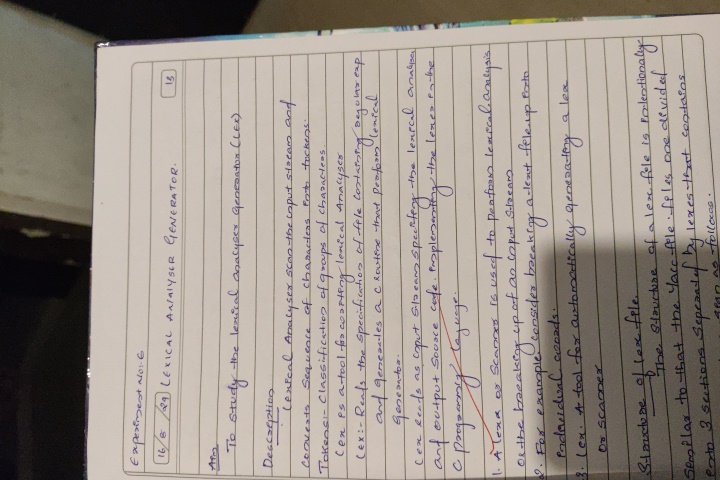 Experiment No: 6
16/8/24 LEXICAL ANALYSER GENERATOR. 13
Aim
To study the lexical analyser Generator (LEX)
Description
Lexical Analyser scan the input stream and
converts sequence of characters into tockens.
Tokens:- Classification of groups of characters.
Lex is a tool for writing lexical Analyser
Lex:- Reads the specification of file containing regular exp
and generates a C Routine that perform lexical
Generator.
Lex reads as input stream specifing the lexical analyser
and output source code. implementing the lexer in the
C programming language.
1. A lexa or scanner is used to perform lexical analysis
or the breaking up of an input stream
2. For example consider breaking a text file up into
individual words.
3. Lex. A tool for automatically generating a lex
or scanner
Structure of Lex file.
The structure of a lex file is intentionally
similar to that the Yacc file. files are divided
into 3 sections seperated by lexes that contains
as follows.